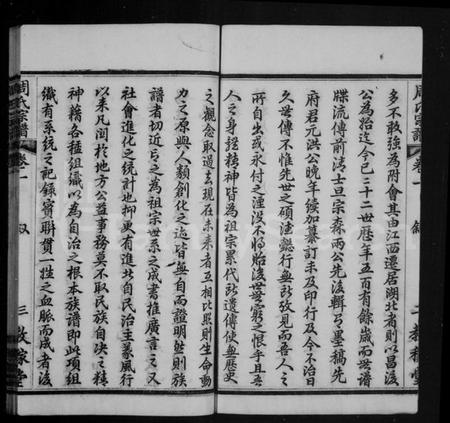 多不敢強為附會其由江西遷居湖北者則以昌後
公為始迄今已二十二世歷年五百有餘歲而世譜
牒流傳前清士旦宗森兩公先後輯有墨稿先
府君元洪公晚年續加纂訂未及印行及今不治日
久世傳不惟先世之碩德懿行無所攷見而吾人之
所自出或永付之湮沒不彰貽後世無窮之恨乎且吾
人之身經精神皆為祖宗累代所遺傳使無歷史
之觀念取過去現在未來者互相比照則生命動
力之原與人類創化之迹皆無自而證明然則族
譜者切近言之為祖宗世系之成書推廣言之又
社會進化之統計也抑更有進北自民治主義風行
以來凡關於地方公益事務莫不取民族自決之精
神藉各種組織以為自治之根本族譜即此項組
織有系統之記錄實聯貫一姓之血脈而成者後
周氏宗譜
卷一
敘
三
教稼堂